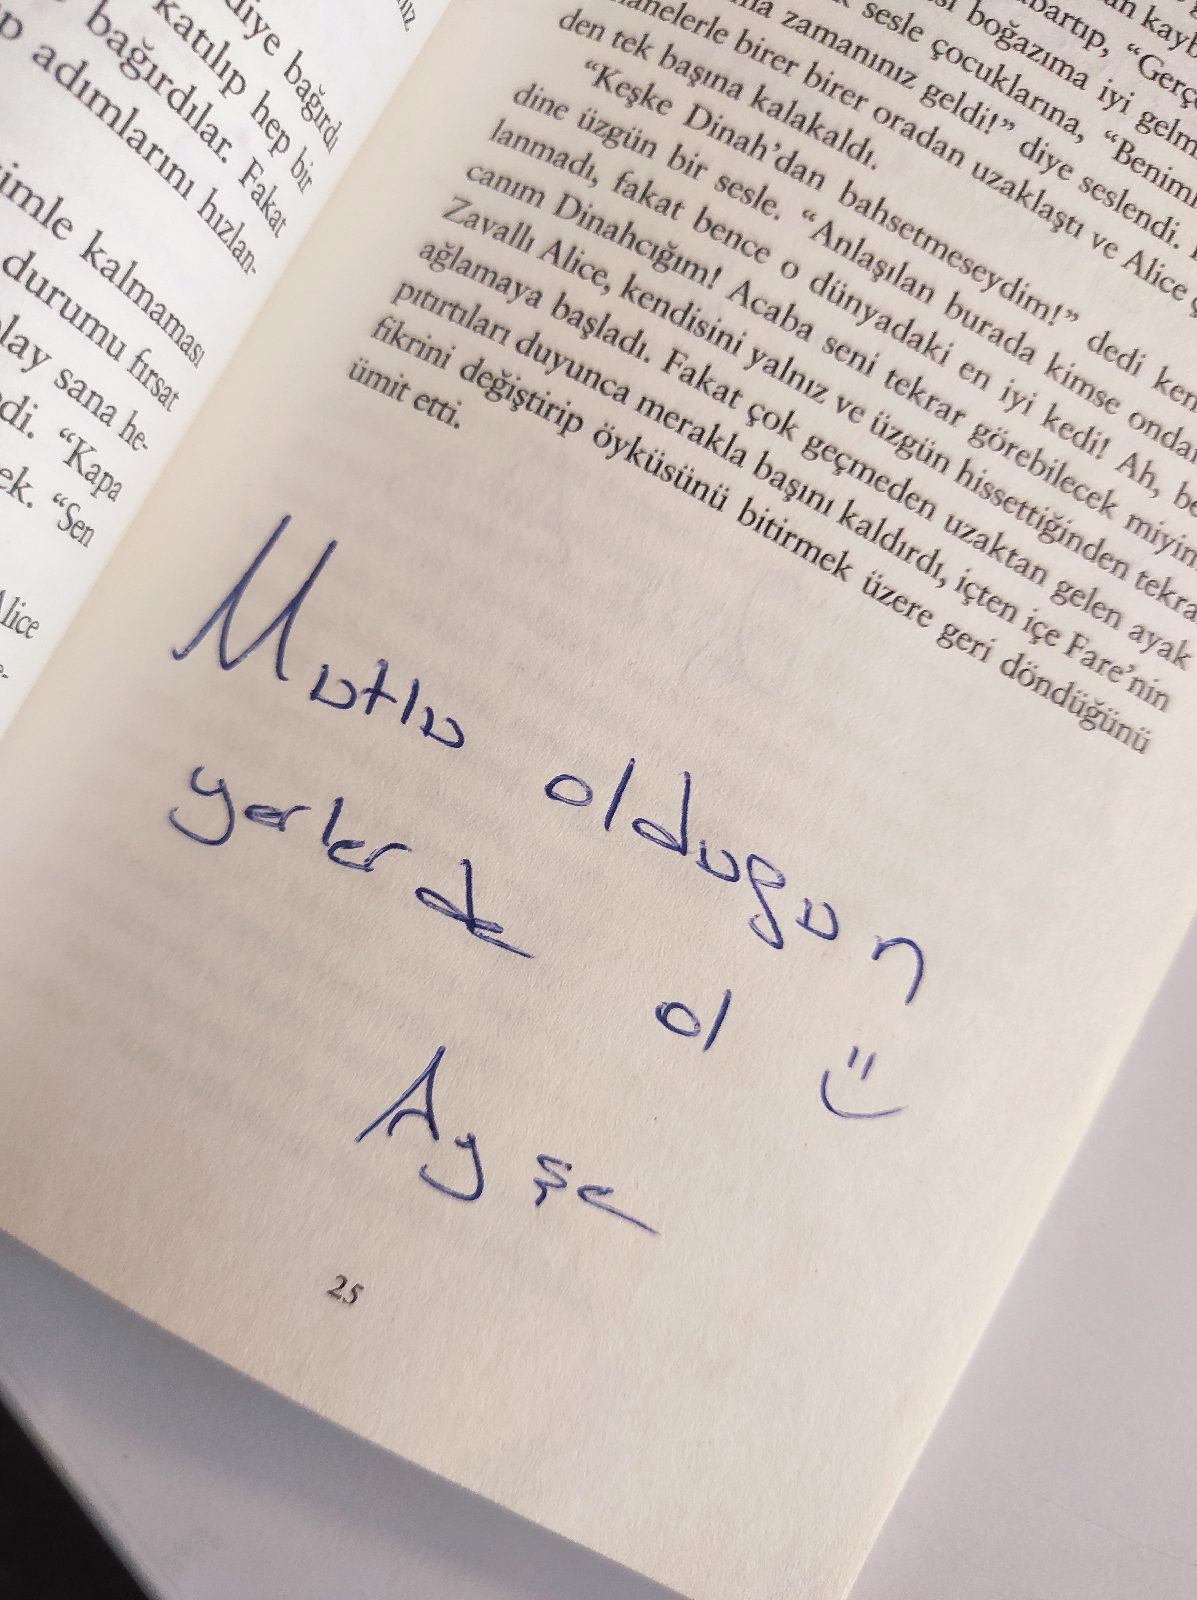 diye bağırdı
katılıp hep bir
bağırdılar. Fakat
adımlarını hızlan-
kalmaması
durumu fırsat
sana he-
"Kapa
"Sen
Alice
boğazıma iyi
sesle çocuklarına, "Benim
zamanınız geldi!" diye seslendi.
birer birer oradan uzaklaştı ve Alice
den tek başına kalakaldı.
"Keşke Dinah'dan bahsetmeseydim!" dedi ken
dine üzgün bir sesle. "Anlaşılan burada kimse
lanmadı, fakat bence o dünyadaki en iyi kedi! Ah,
canım Dinahcığım! Acaba seni tekrar görebilecek miyim
Zavallı Alice, kendisini yalnız ve üzgün hissettiğinden tekra
ağlamaya başladı. Fakat çok geçmeden uzaktan gelen ayak
pıtırtıları duyunca merakla başını kaldırdı, içten içe Fare'nin
fikrini değiştirip öyküsünü bitirmek üzere geri döndüğünü
ümit etti.
Mutlu olduğun
yerlerde ol
Ayşe
25